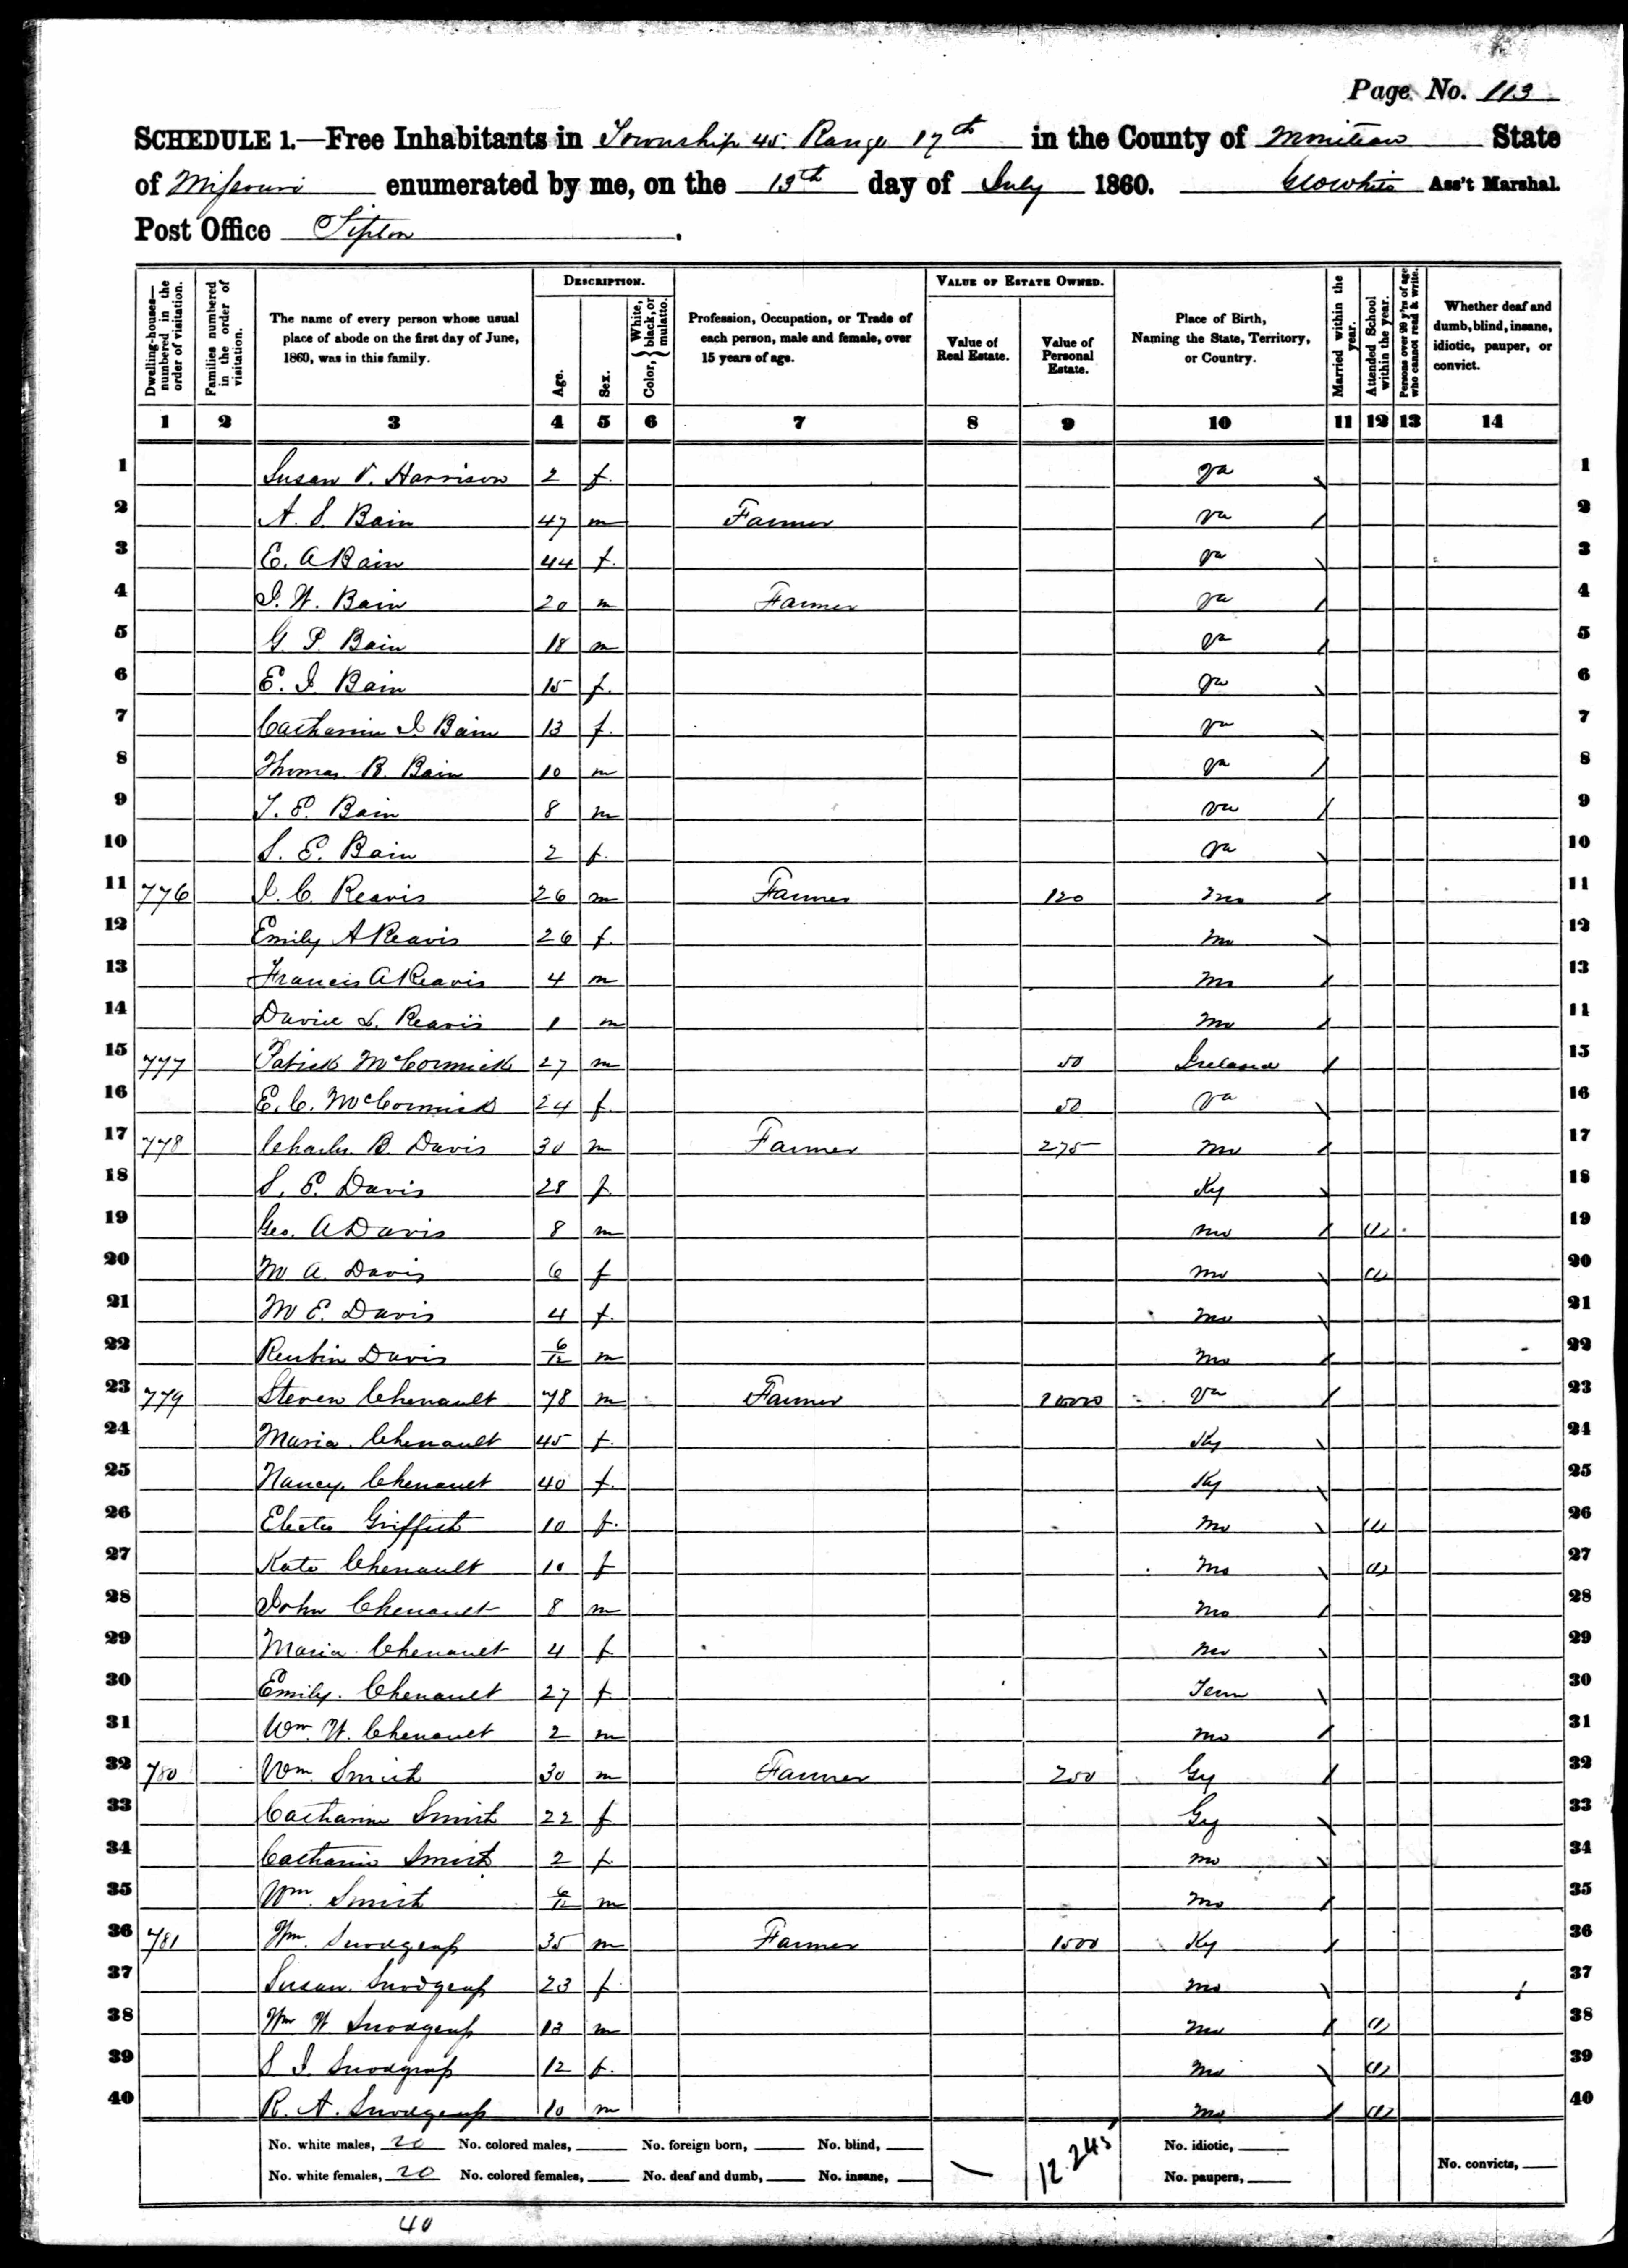 Page No. 113
SCHEDULE 1.—Free Inhabitants in Township 45 Range 17th in the County of Moniteau State
of Missouri enumerated by me, on the 13th day of July 1860. Geo White Ass't Marshal.
Post Office Tipton.
Dwelling-houses—numbered in the order of visitation.
Families numbered in the order of visitation.
The name of every person whose usual place of abode on the first day of June, 1860, was in this family.
DESCRIPTION.
Age.
Sex.
Color, { White, black, or mulatto.
Profession, Occupation, or Trade of each person, male and female, over 15 years of age.
VALUE OF ESTATE OWNED.
Value of Real Estate.
Value of Personal Estate.
Place of Birth, Naming the State, Territory, or Country.
Married within the year.
Attended School within the year.
Persons over 20 y'rs of age who cannot read & write.
Whether deaf and dumb, blind, insane, idiotic, pauper, or convict.
1 2 3 4 5 6 7 8 9 10 11 12 13 14
1 Susan V. Harrison 2 f. Va 1
2 A. S. Bain 47 m Farmer Va 2
3 E. A Bain 44 f. Va 3
4 J. W. Bain 20 m Farmer Va 4
5 G. P. Bain 18 m Va 5
6 E. J. Bain 15 f. Va 6
7 Catharine J. Bain 13 f. Va 7
8 Thomas R. Bain 10 m Va 8
9 T. E. Bain 8 m Va 9
10 S. E. Bain 2 f. Va 10
11 776 J. C. Reavis 26 m Farmer 120 Mo 11
12 Emily A Reavis 26 f. Mo 12
13 Francis A Reavis 4 m Mo 13
14 David L. Reavis 1 m Mo 14
15 777 Patrick McCormick 27 m 50 Ireland 15
16 E. C. McCormick 24 f 50 Va 16
17 778 Charles B. Davis 30 m Farmer 275 Mo 17
18 S. E. Davis 28 f. Ky 18
19 Geo. A Davis 8 m Mo (1) 19
20 M A. Davis 6 f Mo (1) 20
21 M E. Davis 4 f. Mo 21
22 Reubin Davis 6/12 m Mo 22
23 779 Steven Chenault 78 m Farmer 10000 Va 23
24 Maria Chenault 45 f. Ky 24
25 Nancy Chenault 40 f. Ky 25
26 Griffith 10 f. Mo (1) 26
27 Kate Chenault 10 f Mo (1) 27
28 John Chenault 8 m Mo 28
29 Maria Chenault 4 f Mo 29
30 Emily Chenault 27 f Tenn 30
31 Wm. W. Chenault 2 m Mo 31
32 780 Wm. Smith 30 m Farmer 250 Gy 32
33 Catharine Smith 22 f Gy 33
34 Catharine Smith 2 f. Mo 34
35 Wm. Smith 6/12 m Mo 35
36 781 Wm. Snodgrass 35 m Farmer 1500 Ky 36
37 Susan Snodgrass 23 f Mo 37
38 Wm W Snodgrass 13 m Mo (1) 38
39 S J. Snodgrass 12 f. Mo (1) 39
40 R. A. Snodgrass 10 m Mo (1) 40
No. white males, 20 No. colored males, No. foreign born, No. blind, 12.245 No. idiotic,
No. white females, 20 No. colored females, No. deaf and dumb, No. insane, No. paupers, No. convicts,
40